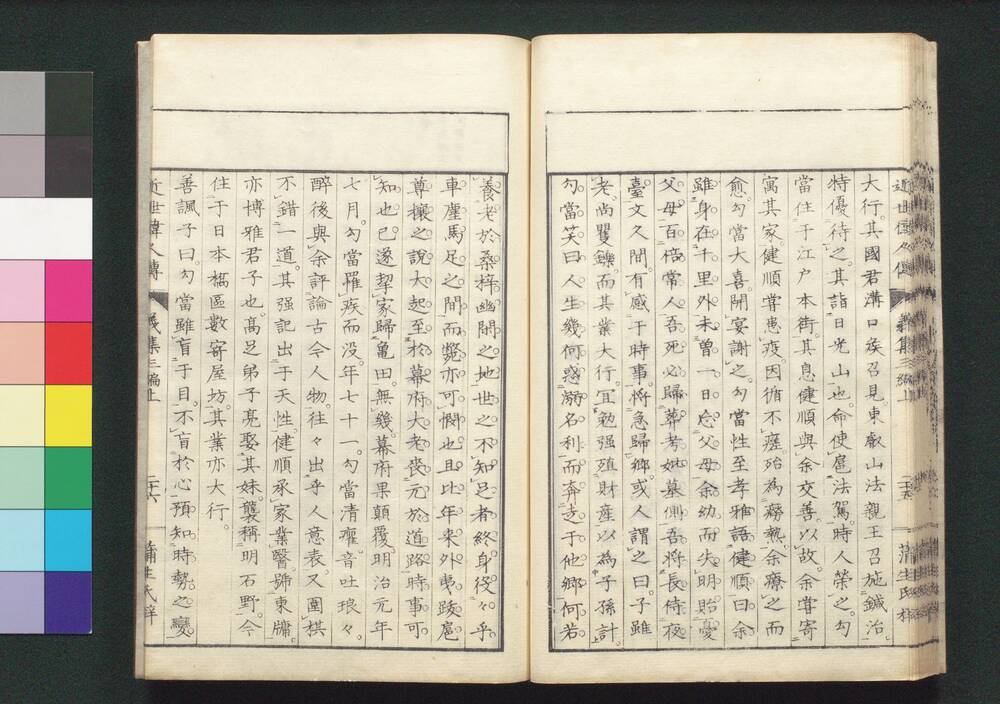 大行。其國君溝口矦召見。東叡山法親王召施鍼治。
特優待之。其詣日光山也。命使扈法駕。時人榮之。勾
當住于江戸本街。其息健順與余交善。以故。余嘗寄
寓其家。健順嘗患疫。因循不瘥。殆為癆熱。余療之而
愈。勾當大喜。開宴謝之。勾當性至孝。雅語健順曰。余
雖身在千里外。未曾一日忘父母。余幼而失明。貽憂
父母百倍常人。吾死必歸葬考妣墓側。吾將長侍夜
臺。文久間。有感于時事。將急歸鄉。或人謂之曰。子雖
老。尚矍鑠。而其業大行。宜勉强殖財産以為子孫計。
勾當笑曰。人生幾何。惑溺名利。而奔走于他鄉。何若
養老於桑梓幽閒之地。世之不知足者。終身役々乎
車塵馬足之間而斃。亦可憫也。且比年來外夷跋扈。
尊攘之說大起。至於幕府大老喪元於道路。時事可
知也已。遂挈家歸亀田。無幾。幕府果顛覆。明治元年
七月。勾當罹疾而没。年七十一。勾當清癯。音吐琅々。
醉後與余評論古今人物。往々出乎人意表。又圍棋
不錯一道。其强記出于天性。健順承家業醫。號東牖。
亦博雅君子也。高足弟子亮娶其妹。襲稱明石野。今
住于日本橋區數寄屋坊。其業亦大行。
善諷子曰。勾當雖盲于目。不盲於心。預知時勢之變。
近世偉人傳 義集三編上 二十六 蒲生氏梓